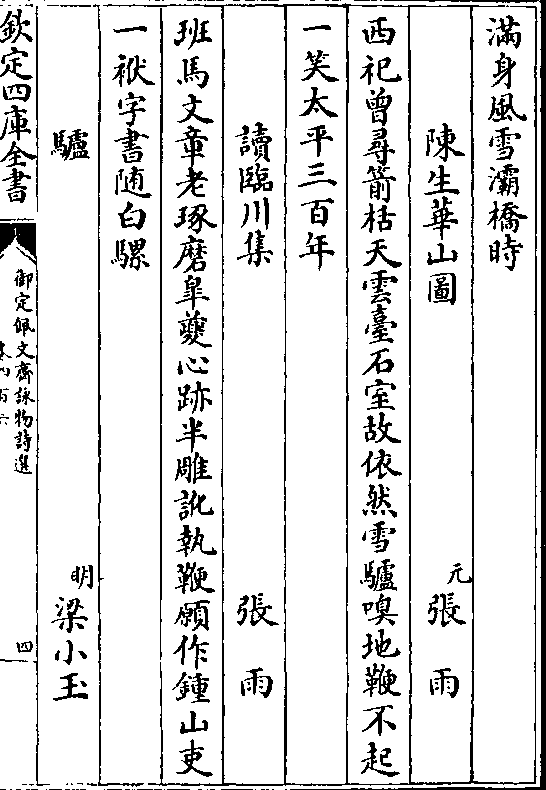 滿身風雪灞橋時
陳生華山圖 元張雨
西祀曾尋箭栝天雲臺石室故依然雪驢嗅地鞭不起
一笑太平三百年
讀臨川集 張雨
班馬文章老琢磨臯夔心跡半雕訛執鞭願作鍾山吏
一袱字書随白騾
驢 明梁小玉
欽定四庫全書
御定佩文齋詠物詩選
卷四百六
四